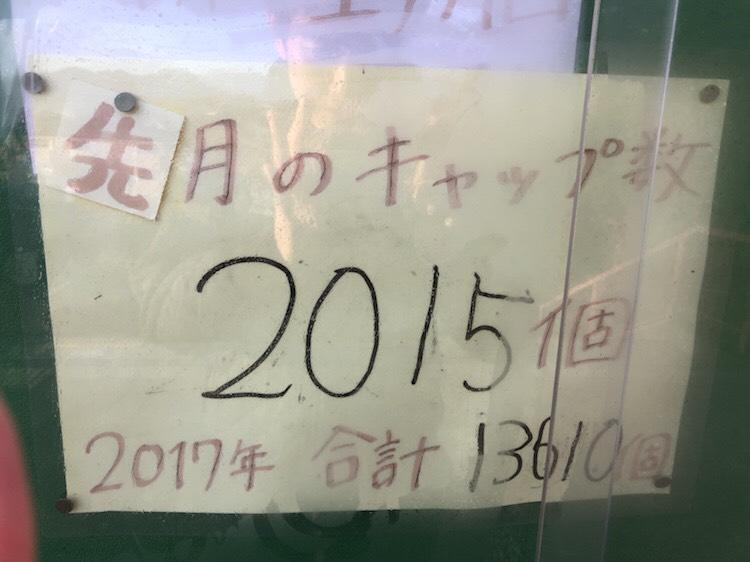 先月のキャップ数
2015個
2017年 合計 13610個